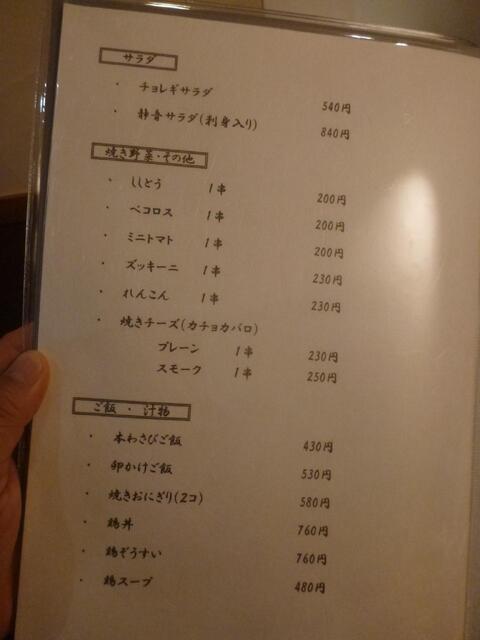 サラダ
・ チョレギサラダ 540円
・ 静香サラダ(刺身入り) 840円
焼き野菜・その他
・ ししとう 1串 200円
・ ペコロス 1串 200円
・ ミニトマト 1串 200円
・ ズッキーニ 1串 230円
・ れんこん 1串 230円
・ 焼きチーズ(カチョカバロ)
プレーン 1串 230円
スモーク 1串 250円
ご飯 ・ 汁物
・ 本わさびご飯 430円
・ 卵かけご飯 530円
・ 焼きおにぎり(2コ) 580円
・ 鶏丼 760円
・ 鶏ぞうすい 760円
・ 鶏スープ 480円